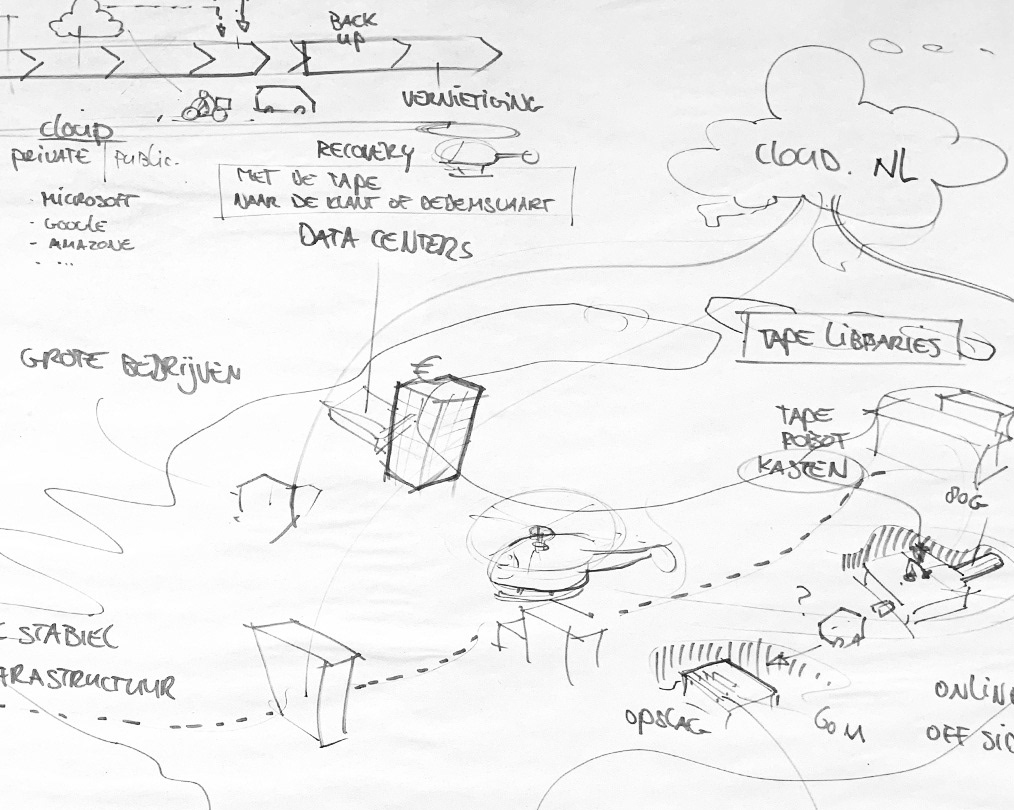 BACK
UP
VERNIETIGING
CLOUD
PRIVATE PUBLIC.
- MICROSOFT
- GOOGLE
- AMAZONE
- ...
RECOVERY
MET DE TAPE
NAAR DE KLANT OF DEDEMSVAART
DATA CENTERS
CLOUD. NL
TAPE LIBBARIES
GROTE BEDRIJVEN
€
TAPE
ROBOT
KASTEN
80G
?
STABIEL
ARASTRUCTUUR
OPSLAG
60M
ONLINE
OFF SID